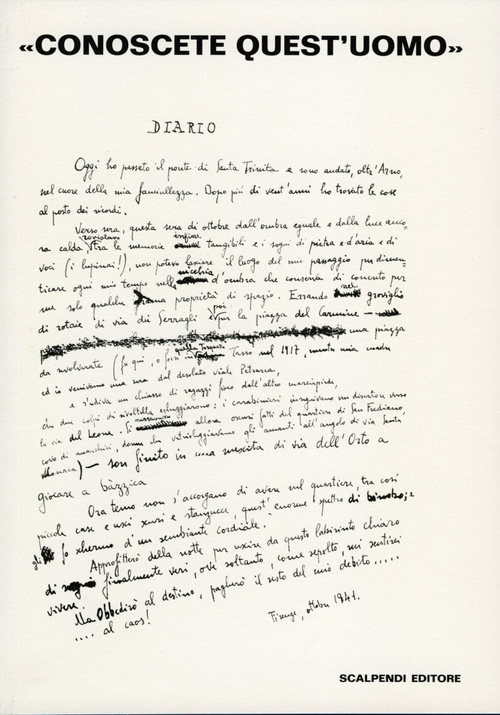 «CONOSCETE QUEST'UOMO»
DIARIO
Oggi ho passato il ponte di Santa Trinita e sono andato, oltr'Arno,
nel cuore della mia fanciullezza. Dopo più di vent'anni ho trovato le cose
al posto dei ricordi.
Verso sera, questa sera di ottobre dall'ombra eguale e dalla luce anco-
ra calda, tra le memorie tangibili e i sogni di pietra e d'aria e di
voci (i lupinai!), non potevo lasciare il luogo del mio passaggio per dimen-
ticare ogni mio tempo nella nicchia d'ombra che conserva di concreto per
me solo qualche proprietà di spazio. Errando nel groviglio
di rotaie di via dei Serragli poi per la piazza del Carmine —
una piazza
da (fu qui, o forsi in Tasso nel 1917, morta mia madre
ed io venivamo una sera dal desolato viale Petrarca,
e s'udiva un chiasso di ragazzi fuori dall'altro marciapiede,
due colpi di rivoltella echeggiarono: i carabinieri inseguivano un disertore verso
la via del Leone. Si allora oscuri fatti del quartiere di San Frediano,
covo di anarchici, donne che gli amanti all'angolo di via Santa
Monaca) — son finito in una mescita di via dell'Orto a
giocare a bàzzica
Ora temo non s'accorgano di avere nel quartiere, tra così
piccole case e usci scuri e stanzucce, quest'enorme spettro di
gli fo schermo d'un sembiante cordiale.
Approfitterò della notte per uscire da questo labirinto chiaro
di finalmente veri, ove soltanto, come sepolto, mi sentirei
vivere.
Ma Obbedirò al destino, pagherò il resto del mio debito.....
.... al caos!
Firenze, ottobre 1941.
SCALPENDI EDITORE